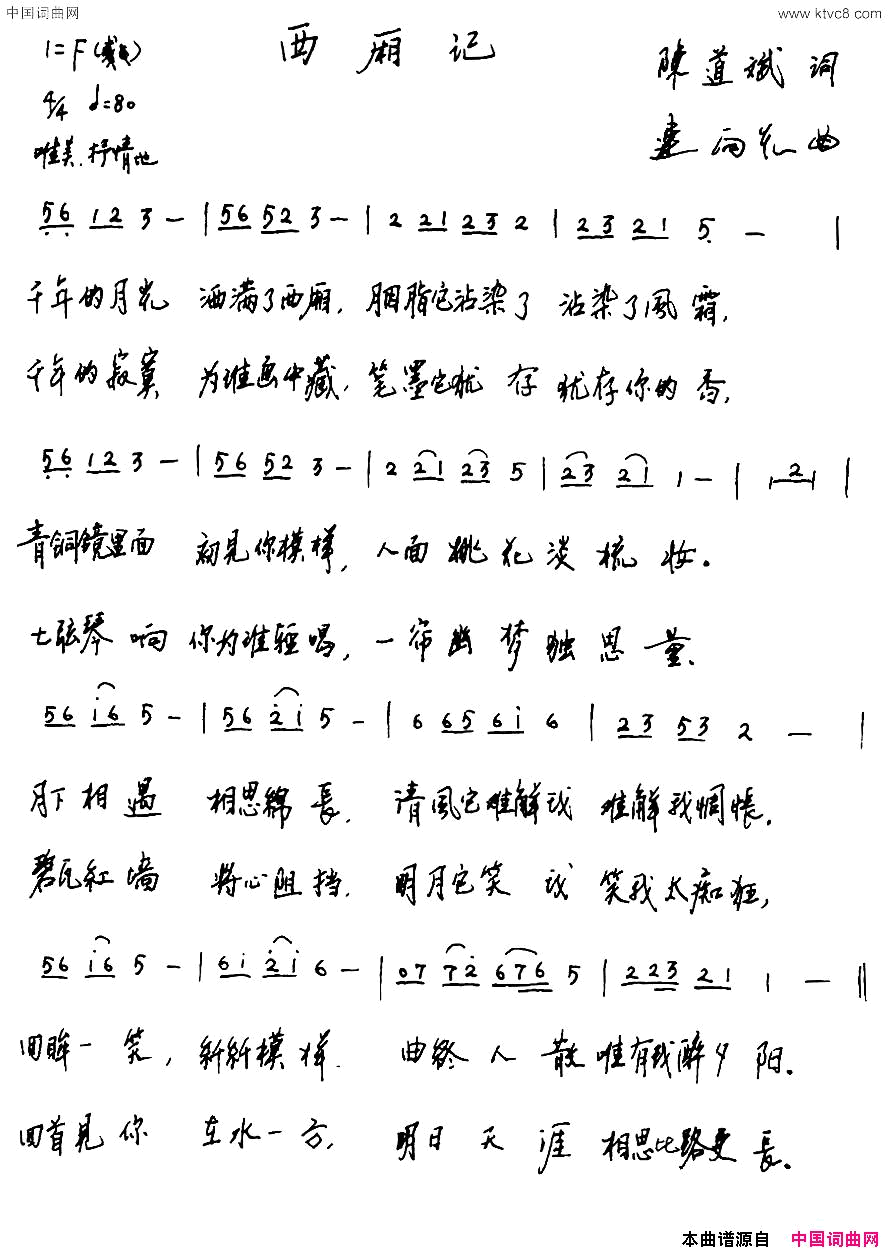 中国词曲网 www.ktvc8.com
西厢记
1=F
4/4 ♩=80
陳道斌 词
唯美.抒情地
雨花 曲
56 12 3 - | 56 52 3 - | 2 21 23 2 | 23 21 5 - |
千年的月光 洒满了西厢，胭脂它沾染了 沾染了風霜，
千年的寂寞 为谁画中藏，笔墨它犹存 犹存你的香，
56 12 3 - | 56 52 3 - | 2 21 23 5 | 23 21 1 - | 2 |
青铜鏡里面 初見你模样，人面桃花淡梳妆。
七弦琴响 你为谁轻唱，一帘幽梦独思量.
56 i6 5 - | 56 2i 5 - | 6 65 6i 6 | 23 53 2 - |
月下相遇 相思綿長. 清風它难解我 难解我惆怅.
碧瓦紅墙 将心阻挡. 明月它笑我 笑我太痴狂，
56 i6 5 - | 6i 2i 6 - | 07 72 676 5 | 223 21 1 - ||
回眸一笑，模样. 曲終人散唯有我醉夕阳。
回首見你 在水一方， 明日天涯 相思比路更長。
本曲谱源自 中国词曲网